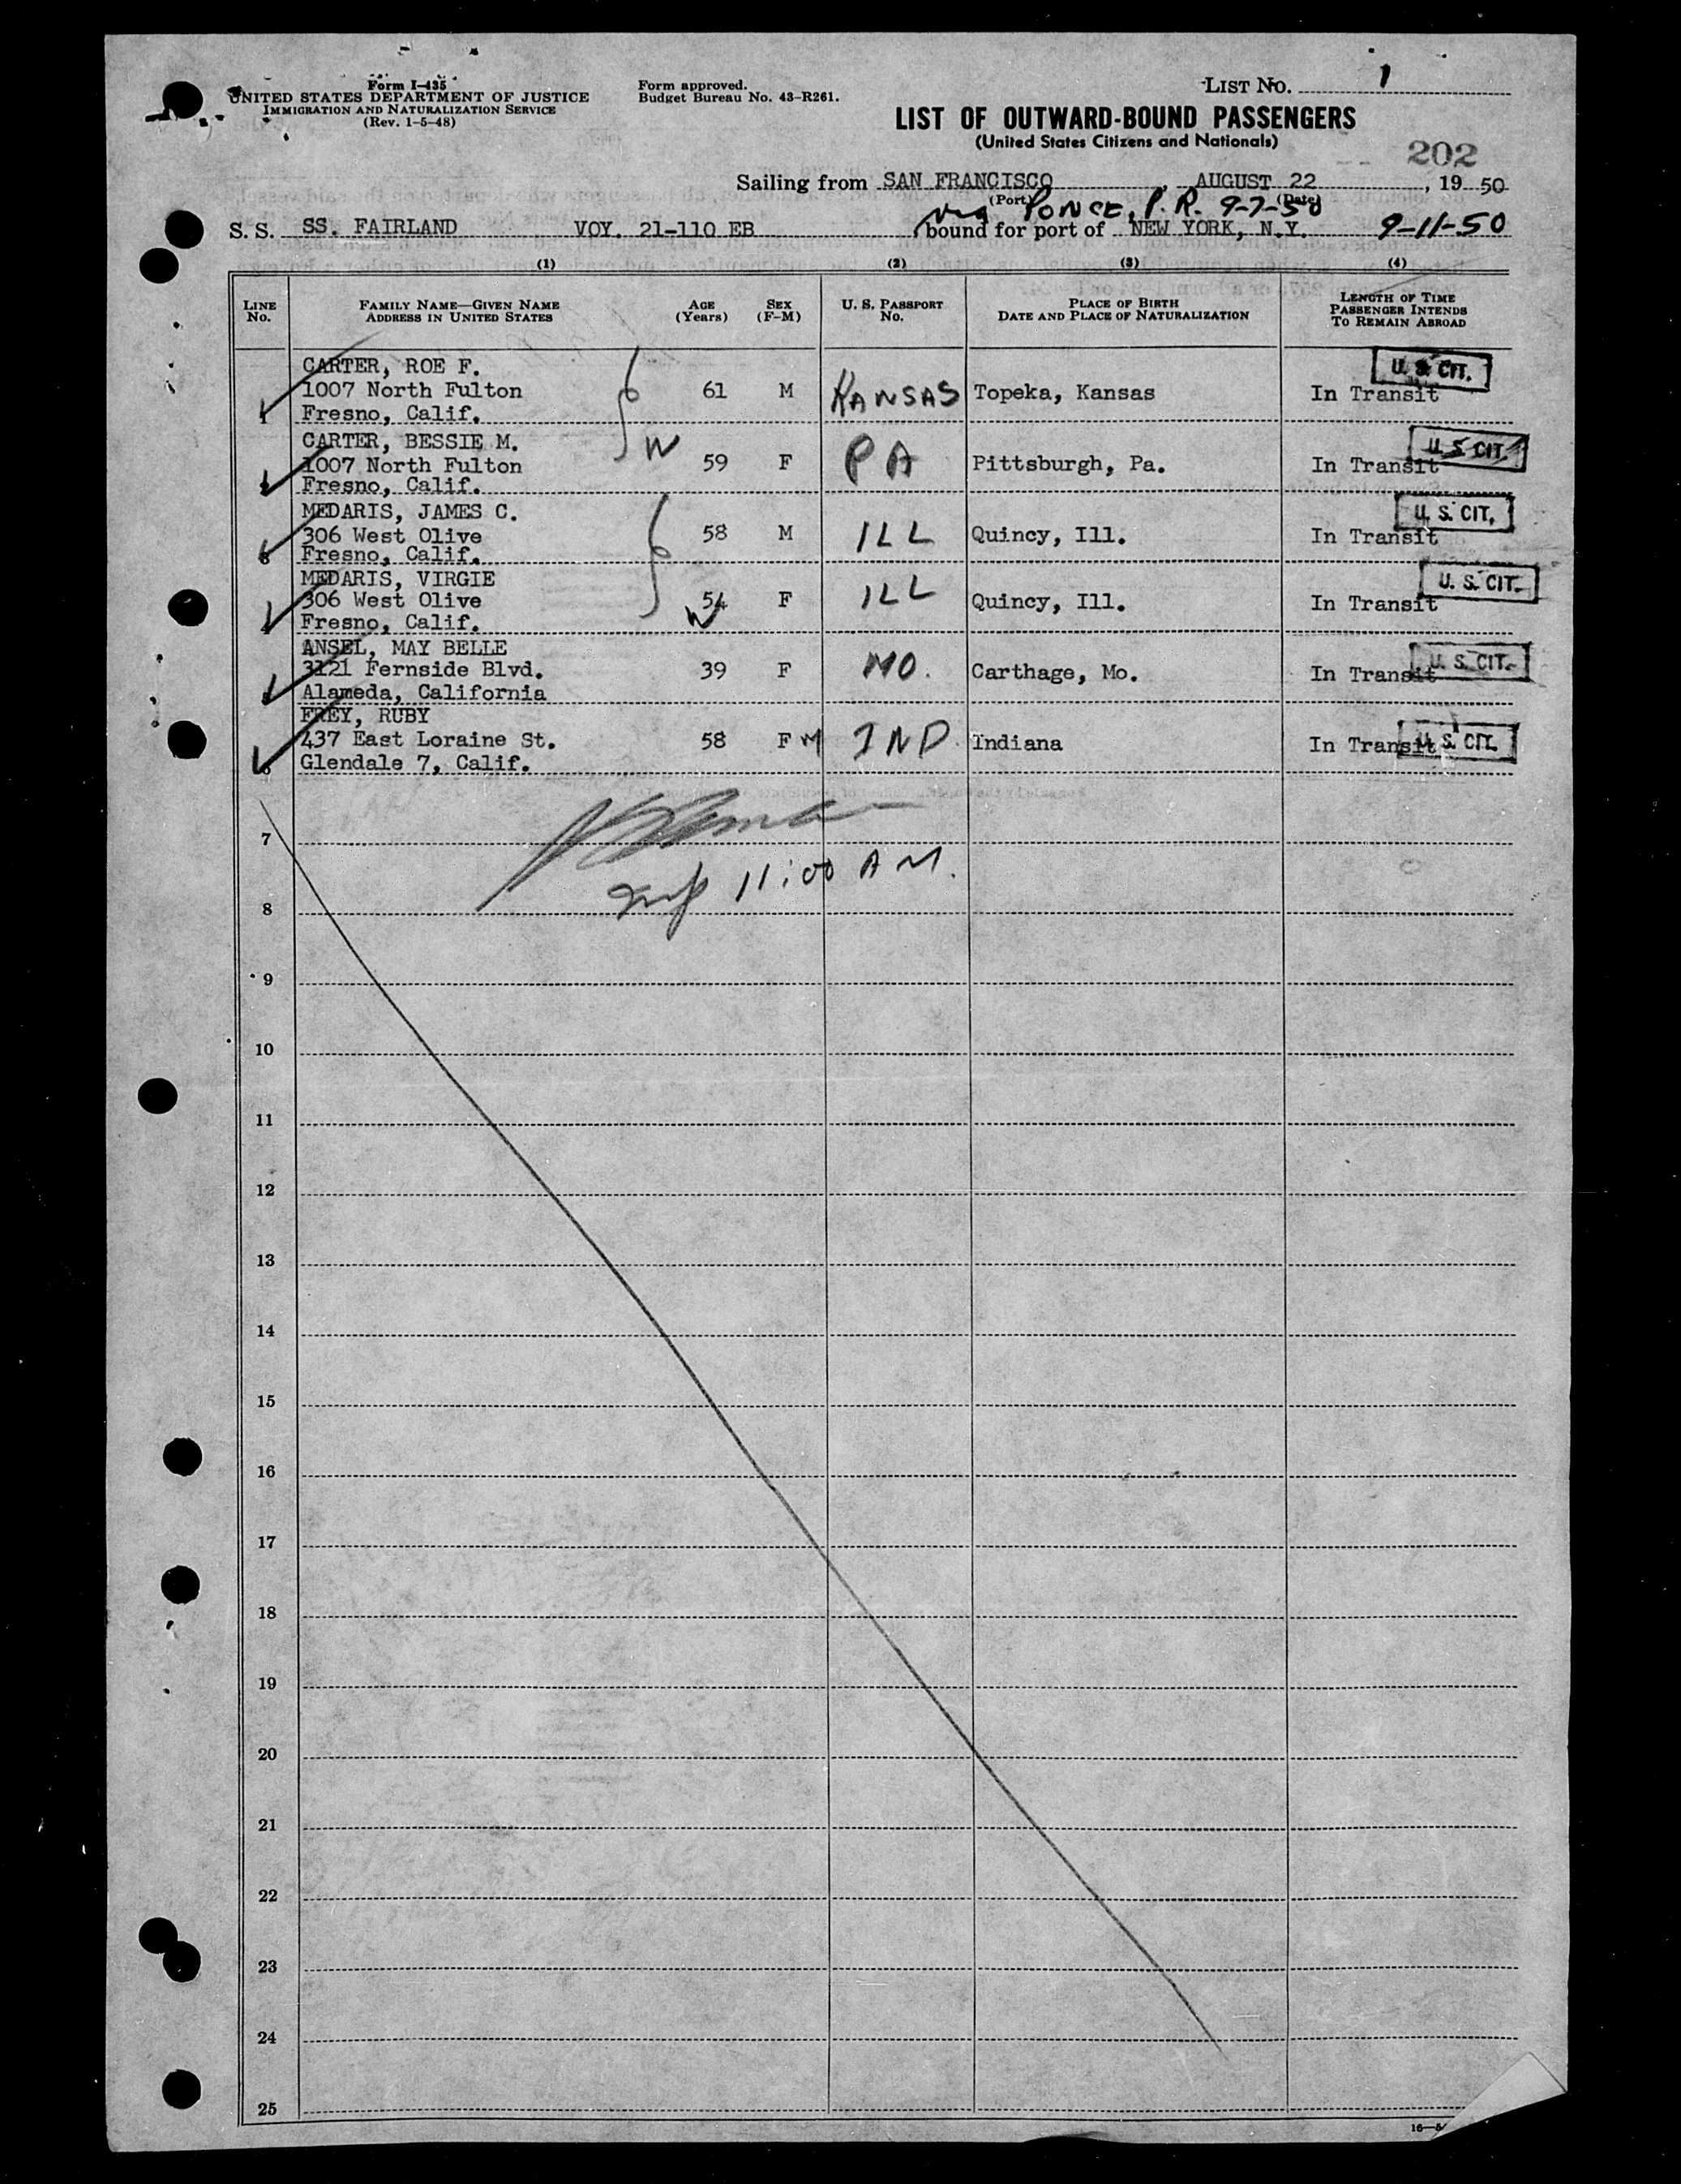 Form I-435
UNITED STATES DEPARTMENT OF JUSTICE
IMMIGRATION AND NATURALIZATION SERVICE
(Rev. 1-5-48)
Form approved.
Budget Bureau No. 43-R261.
LIST NO. 1
LIST OF OUTWARD-BOUND PASSENGERS
(United States Citizens and Nationals)
202
Sailing from SAN FRANCISCO, AUGUST 22, 19 50
(Port) (Date)
via PONCE, P.R. 9-7-50
S. S. SS. FAIRLAND VOY. 21-110 EB bound for port of NEW YORK, N.Y. 9-11-50
(1) (2) (3) (4)
LINE No. FAMILY NAME—GIVEN NAME ADDRESS IN UNITED STATES AGE (Years) SEX (F-M) U. S. PASSPORT No. PLACE OF BIRTH DATE AND PLACE OF NATURALIZATION LENGTH OF TIME PASSENGER INTENDS TO REMAIN ABROAD
CARTER, ROE F. U. S. CIT.
1007 North Fulton 61 M KANSAS Topeka, Kansas In Transit
1 Fresno, Calif.
CARTER, BESSIE M. W U. S. CIT.
1007 North Fulton 59 F PA Pittsburgh, Pa. In Transit
Fresno, Calif.
MEDARIS, JAMES C. U. S. CIT.
306 West Olive 58 M ILL Quincy, Ill. In Transit
Fresno, Calif.
MEDARIS, VIRGIE U. S. CIT.
306 West Olive 54 F ILL Quincy, Ill. In Transit
Fresno, Calif. W
ANSEL, MAY BELLE U. S. CIT.
3121 Fernside Blvd. 39 F MO. Carthage, Mo. In Transit
Alameda, California
FREY, RUBY
437 East Loraine St. 58 F M IND. Indiana In Transit U. S. CIT.
Glendale 7, Calif.
7
11:00 A M.
8
9
10
11
12
13
14
15
16
17
18
19
20
21
22
23
24
25